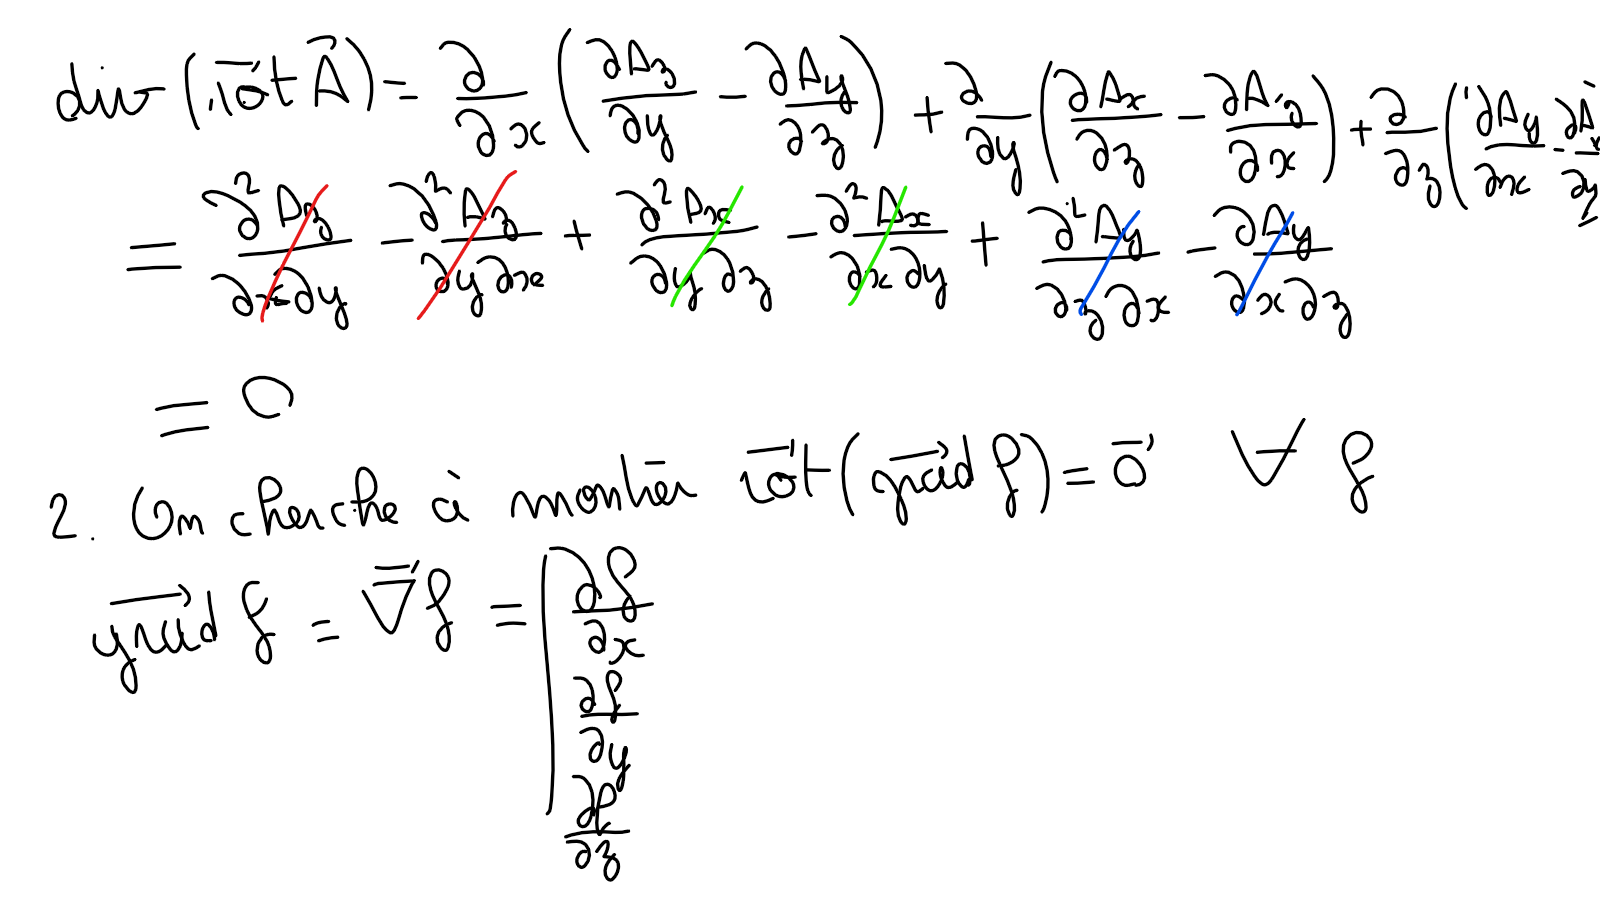 div(rot A⃗) = ∂/∂x (∂A_z/∂y - ∂A_y/∂z) + ∂/∂y (∂A_x/∂z - ∂A_z/∂x) + ∂/∂z (∂A_y/∂x - ∂A_x/∂y
= ∂²A_z/∂x∂y - ∂²A_z/∂y∂x + ∂²A_x/∂y∂z - ∂²A_x/∂x∂y + ∂²A_y/∂z∂x - ∂A_y/∂x∂z
= 0
2. On cherche à montrer rot(grad f) = 0⃗ ∀ f
grad f = ∇⃗f = | ∂f/∂x
∂f/∂y
∂f/∂z